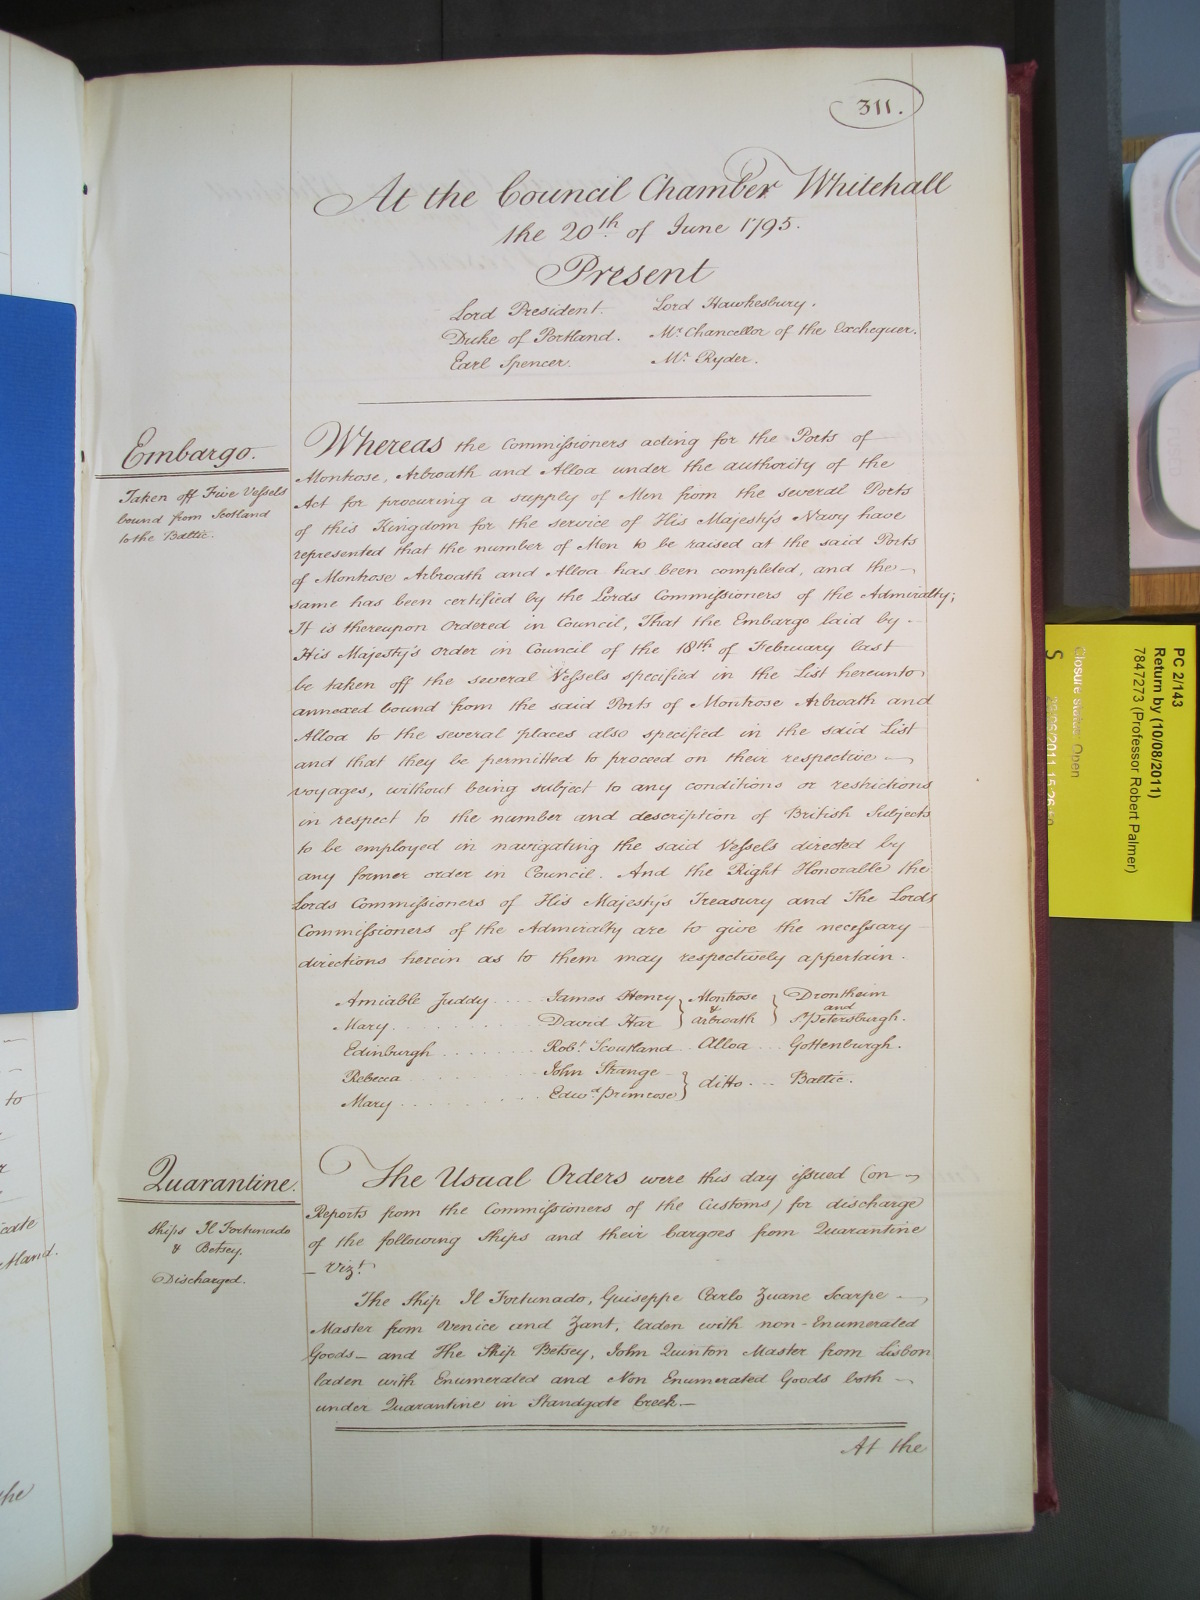 311.
At the Council Chamber Whitehall
the 20th of June 1795.
Present
Lord President. Lord Hawkesbury.
Duke of Portland. Mr Chancellor of the Exchequer.
Earl Spencer. Mr Ryder.
Embargo.
Taken off Five Vessels
bound from Scotland
to the Baltic.
Whereas the Commissioners acting for the Ports of
Montrose, Arbroath and Alloa under the authority of the
Act for procuring a supply of Men from the several Ports
of this Kingdom for the service of His Majesty's Navy have
represented that the number of Men to be raised at the said Ports
of Montrose Arbroath and Alloa has been completed, and the
same has been certified by the Lords Commissioners of the Admiralty;
It is thereupon Ordered in Council, That the Embargo laid by
His Majesty's Order in Council of the 18th of February last
be taken off the several Vessels specified in the List hereunto
annexed bound from the said Ports of Montrose Arbroath and
Alloa to the several places also specified in the said List
and that they be permitted to proceed on their respective
voyages, without being subject to any conditions or restrictions
in respect to the number and description of British Subjects
to be employed in navigating the said Vessels directed by
any former order in Council. And the Right Honorable the
Lords Commissioners of His Majesty's Treasury and The Lords
Commissioners of the Admiralty are to give the necessary
directions herein as to them may respectively appertain.
Amiable Juddy .... James Henry } Montrose } Drontheim
& and
Mary ........ David Har } Arbroath } St Petersburgh.
Edinburgh ....... Robt Scoutland .. Alloa ... Gottenburgh.
Rebecca ........ John Strange
} ditto ... Baltic.
Mary ......... Edwd Primrose
Quarantine.
Ships Il Fortunado
& Betsey.
Discharged.
The Usual Orders were this day issued (on
Reports from the Commissioners of the Customs) for discharge
of the following Ships and their Cargoes from Quarantine
— Vizt
The Ship Il Fortunado, Guiseppe Carlo Zuane Scarpe
Master from Venice and Zant, laden with non-Enumerated
Goods — and The Ship Betsey, John Quinton Master from Lisbon
laden with Enumerated and Non Enumerated Goods both
under Quarantine in Standgate Creek —
At the
PC 2/143
Return by (10/08/2011)
7847273 (Professor Robert Palmer)
Closure status: Open
S
to
icate
the